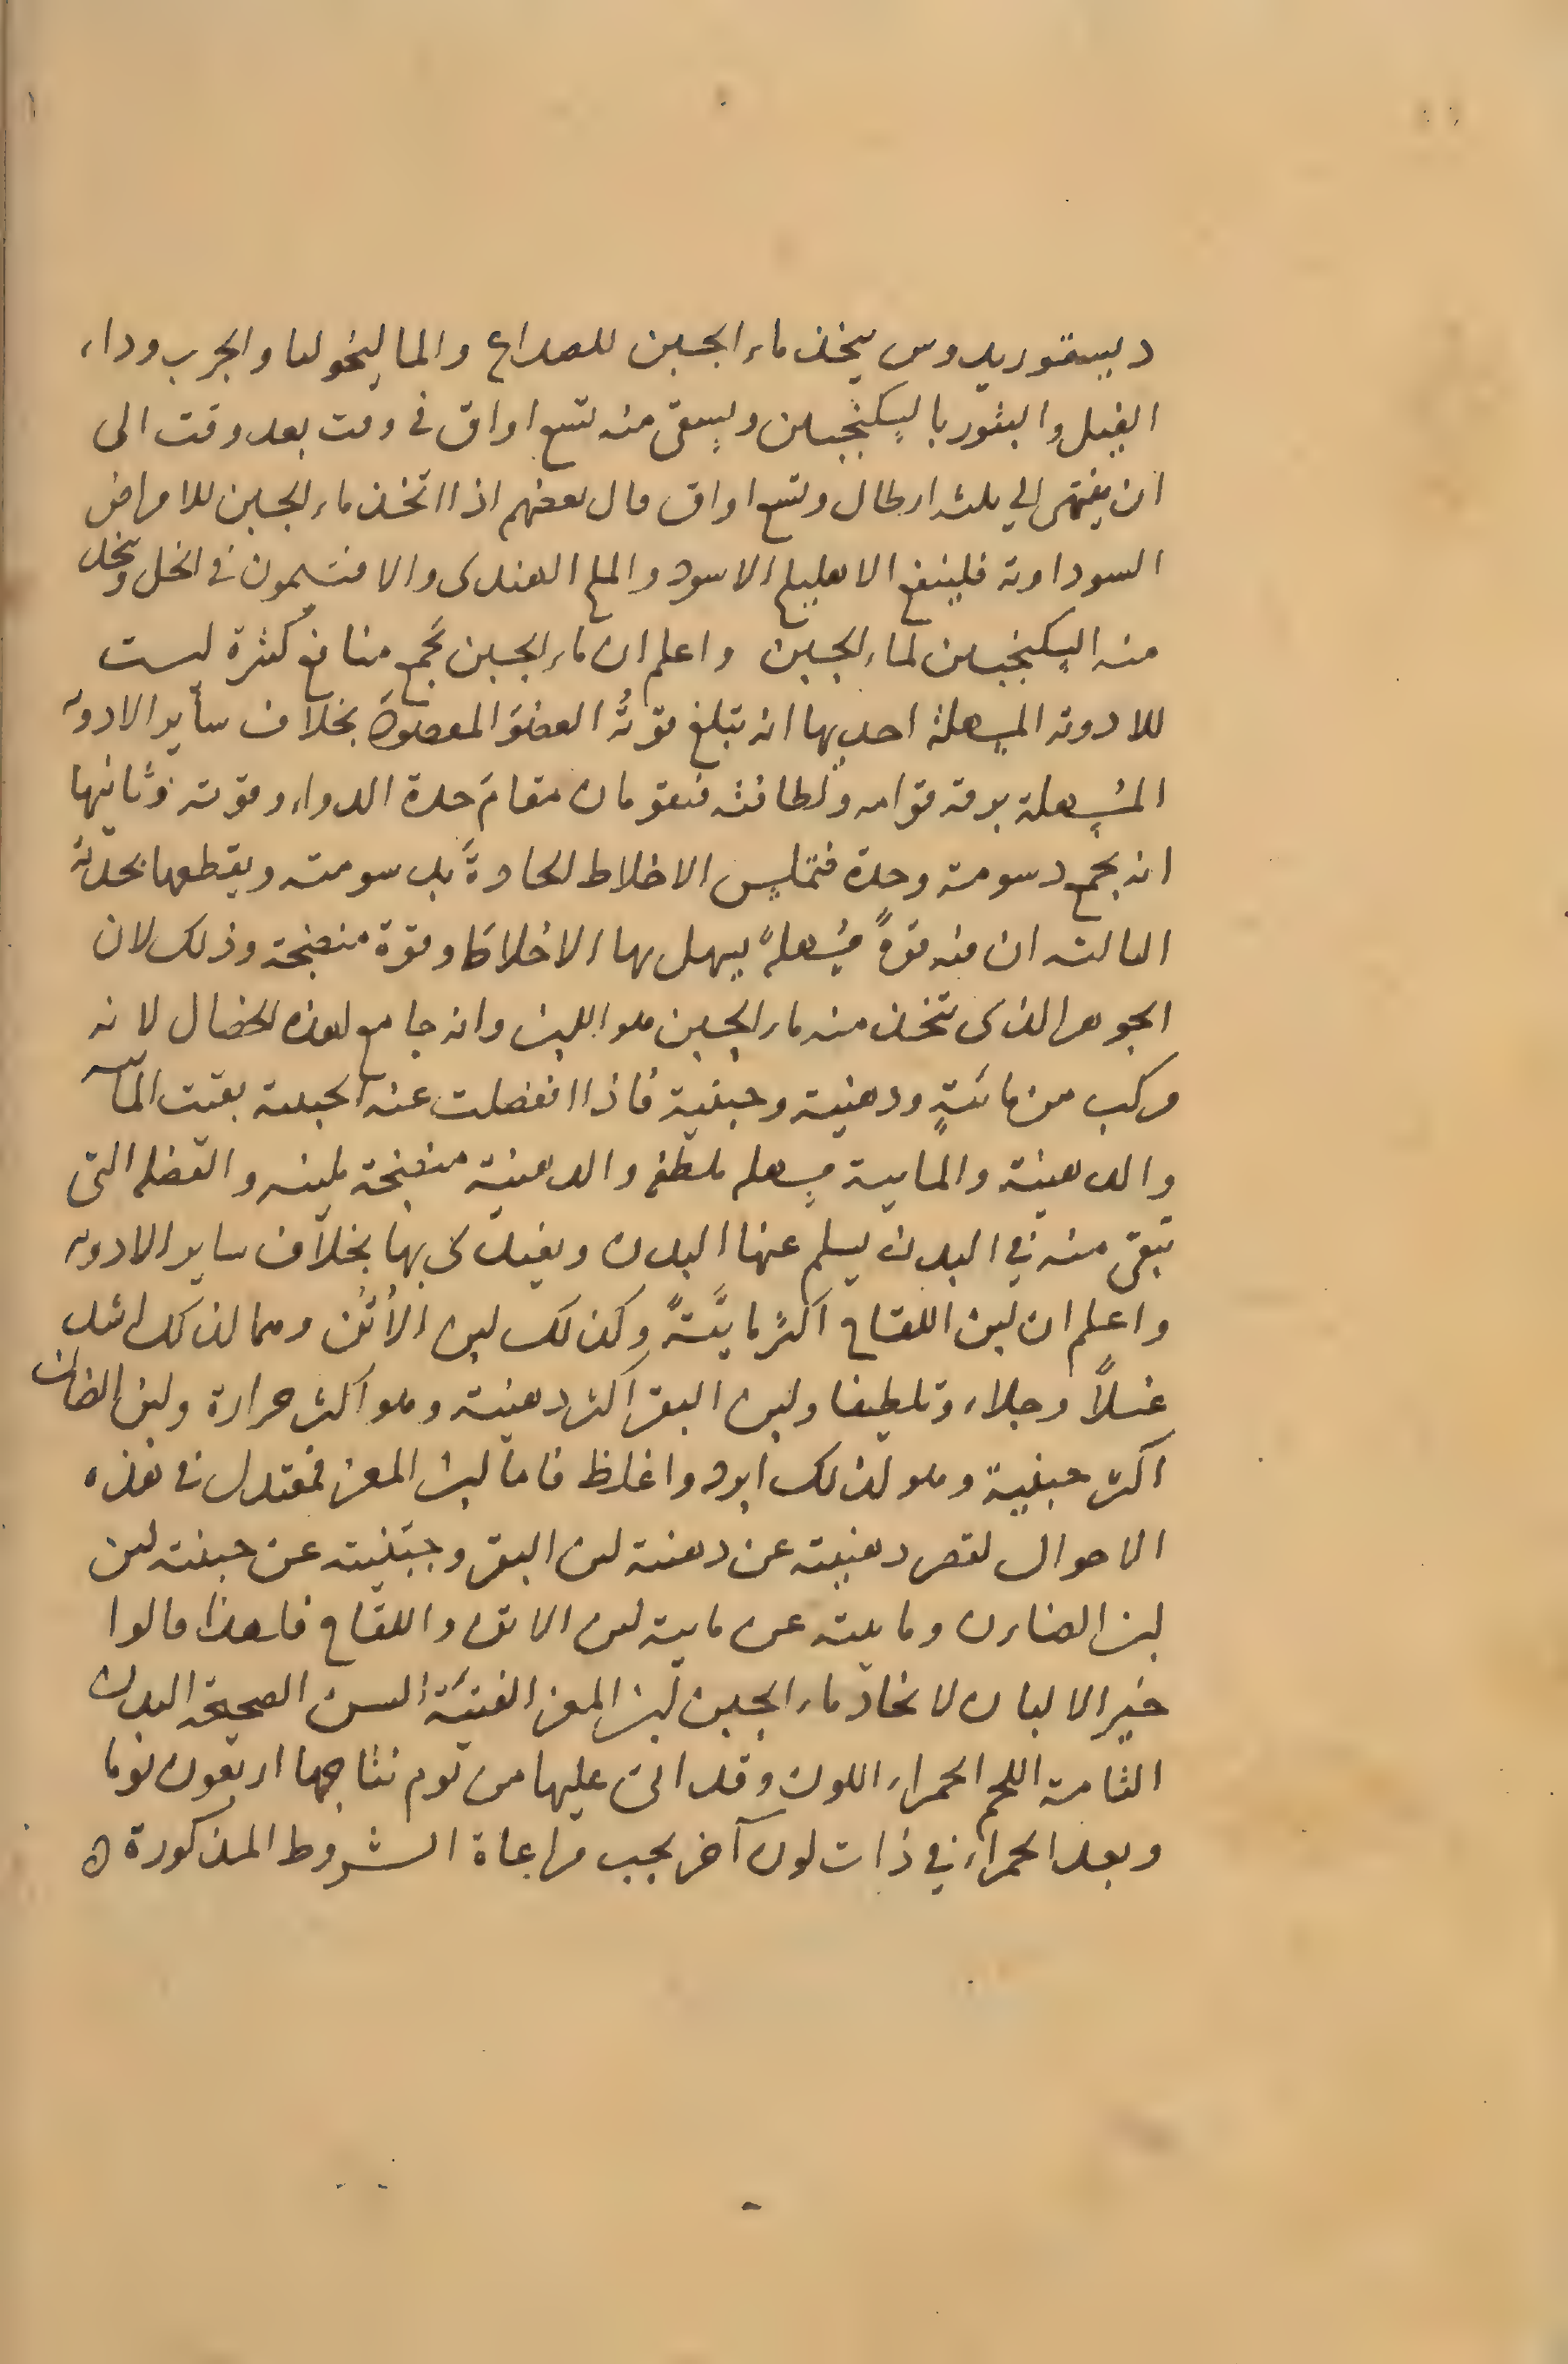 ديسقوريدوس يتخذ ماء الجبن للصداع والماليخوليا والجرب وداء
الفيل والبثور بالسكنجبين ويسقى منه تسع اواق في وقت بعد وقت الى
ان ينتهى الي ثلثه ارطال وتسع اواق قال بعضهم اذا اتخذ ماء الجبن للامراض
السوداوية فلينقع الاهليلج الاسود والملح الهندى والافتيمون في الخل ويتخذ
منه السكنجبين لماء الجبن واعلم ان ماء الجبن يجمع منافع كثيرة ليست
للادوية المسهلة احديها انه تبلغ قوتُه العضوَ المقصودَ بخلاف سأير الادوية
المسهلة برقة قوامه ولطافته فيقومان مقامَ حدة الدواء وقوته وثانيها
انه يجمع دسومة وحدة فتملس الاخلاط الحادةَ بدسومته ويقطعها بحدته
الثالثه ان فيه قوةً مُسهلةً يسهل بها الاخلاط وقوة منضجة وذلك لان
الجوهر الذى تتخذ منه ماء الجبن هو اللبن وانه جامع لهذه الخصال لانه
مركب من مائيةٍ ودهنية وجبنية فاذا انفصلت عنه الجبنية بقيت المائية
والدهنية والمايية مسهله ملطفه والدهنية منضجة ملينه والفضله التى
تبقى منه في البدن يسلم عنها البدن ويغتذى بها بخلاف ساير الادوية
واعلم ان لبن اللقاح اكثر مائيَّةً وكذلك لبن الأُتُن وهما لذلك اشد
غسلًا وجلاء وتلطيفا ولبن البقر اكثر دهنية وهو اكثر حرارة ولبن الضان
اكثر جبنية وهو لذلك ابرد واغلظ فاما لبن المعز فمعتدل في هذه
الاحوال لقصر دهنيته عن دهنية لبن البقر وجبنيته عن جبنية لبن
لبن الضاءن وماييته عن مايية لبن الاتن واللقاح فلهذا قالوا
خير الالبان لاتخاذ ماء الجبن لبن المعز الفتيَّة السن الصحيحة البدن
التامة اللحم الحمراء اللون وقد اتى عليها من يوم نتاجها اربعون يوما
وبعد الحمراء في ذات لون آخر يجب مراعاة الشروط المذكورة ه